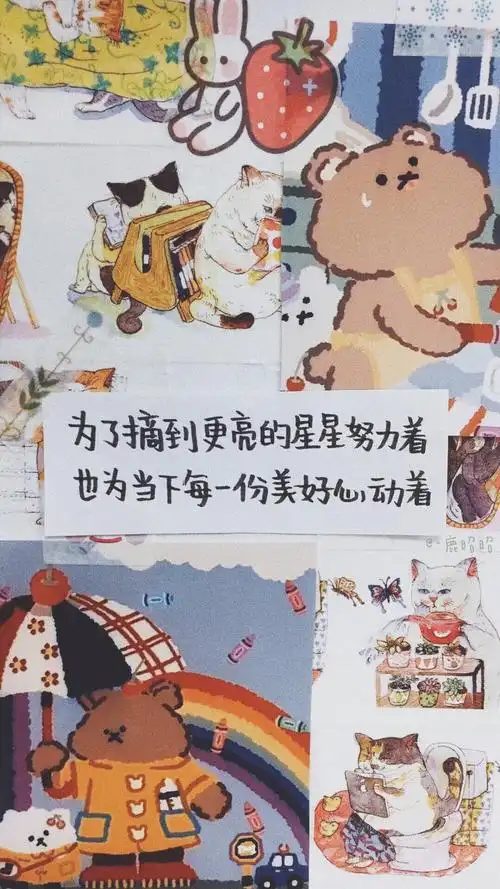 为了摘到更亮的星星努力着
也为当下每一份美好心动着
@鹿昭昭